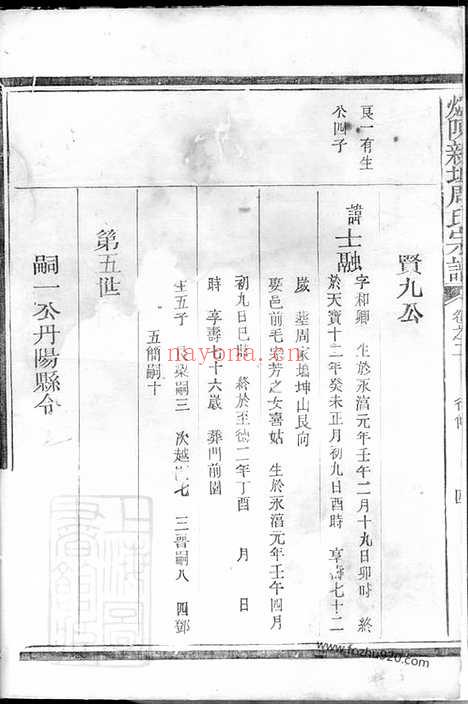 賢九公
諱士融
字和卿 生於永淳元年壬午二月十九日卯時 終
於天寶十二年癸未正月初九日酉時 享壽七十二
歲 葬周家塢坤山艮向
娶邑前毛家芳之女喜姑 生於永淳元年壬午四月
初九日巳時 終於至德二年丁酉 月 日
時 享壽七十六歲 葬門前園
生五子 嗣三 次越 七 三晉嗣八 四鄧
五簡嗣十
良一有生
公四子
第五世
嗣一公丹陽縣令
新 周氏宗譜
卷之二
四
nayona.cn
www.fozhu920.com
上海圖書館藏